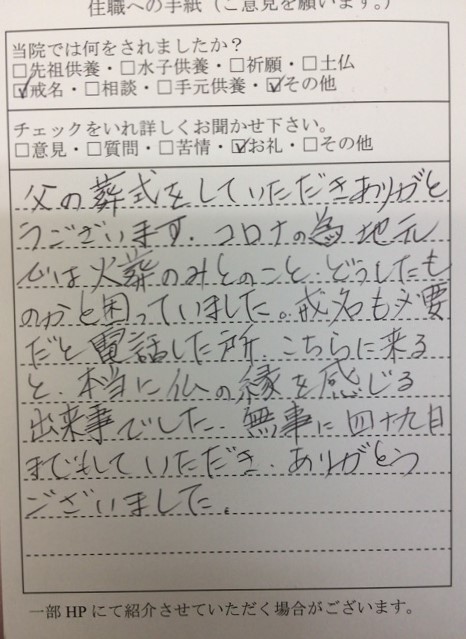 住職への手紙（ご意見を願います。）
当院では何をされましたか？
□先祖供養・□水子供養・□祈願・□土仏
☑戒名・□相談・□手元供養・☑その他
チェックをいれ詳しくお聞かせ下さい。
□意見・□質問・□苦情・☑お礼・□その他
父の葬式をしていただきありがと
うございます。コロナの為地元
では火葬のみとのこと、どうしたも
のかと困っていました。戒名も必要
だと電話した所、こちらに来る
と、本当に仏の縁を感じる
出来事でした。無事に四十九日
までもしていただき、ありがとう
ございました。
一部HPにて紹介させていただく場合がございます。